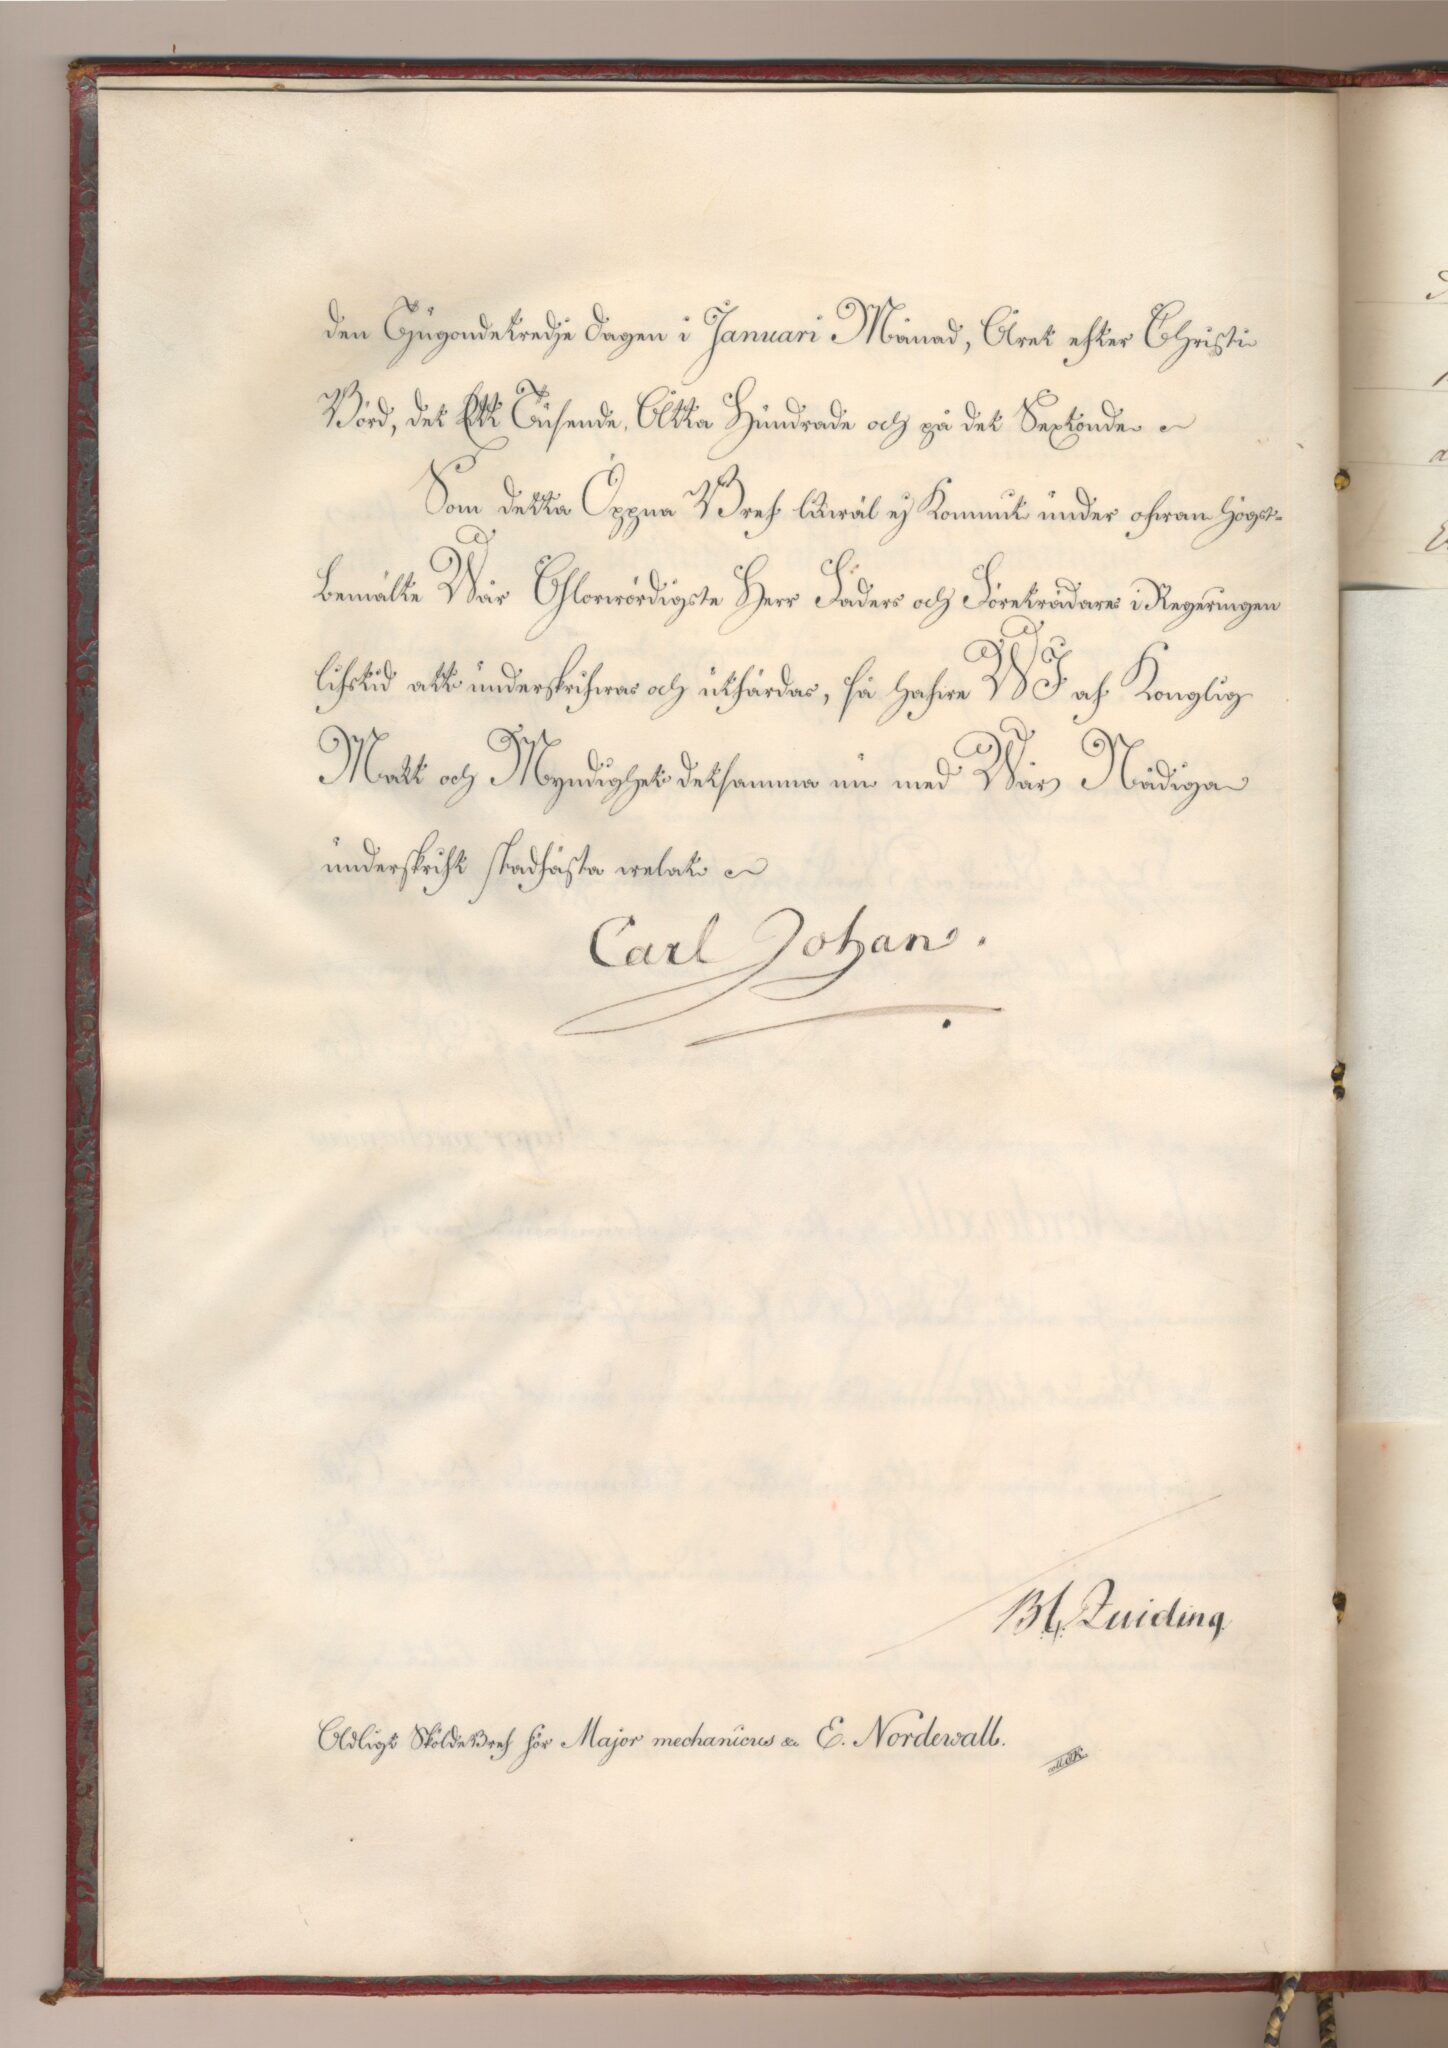 den Tjugondetredje Dagen i Januari Månad, Året efter Christi
Börd, det Ett Tusende, Åtta Hundrade och på det Sextonde
Som detta Öppna Bref likwäl ej kommit under ofwan högst-
bemälte Wår Glorwördigste Herr Faders och Företrädares i Regeringen
lifstid att underskrifwas och utfärdas, så hafwe WJ af Konglig
Makt och Myndighet detsamma nu med Wår Nådiga
underskrift stadfästa welat
Carl Johan.
Bh. Zuiding
Adligt Sköldebref för Major mechanicus &c E. Nordewall.